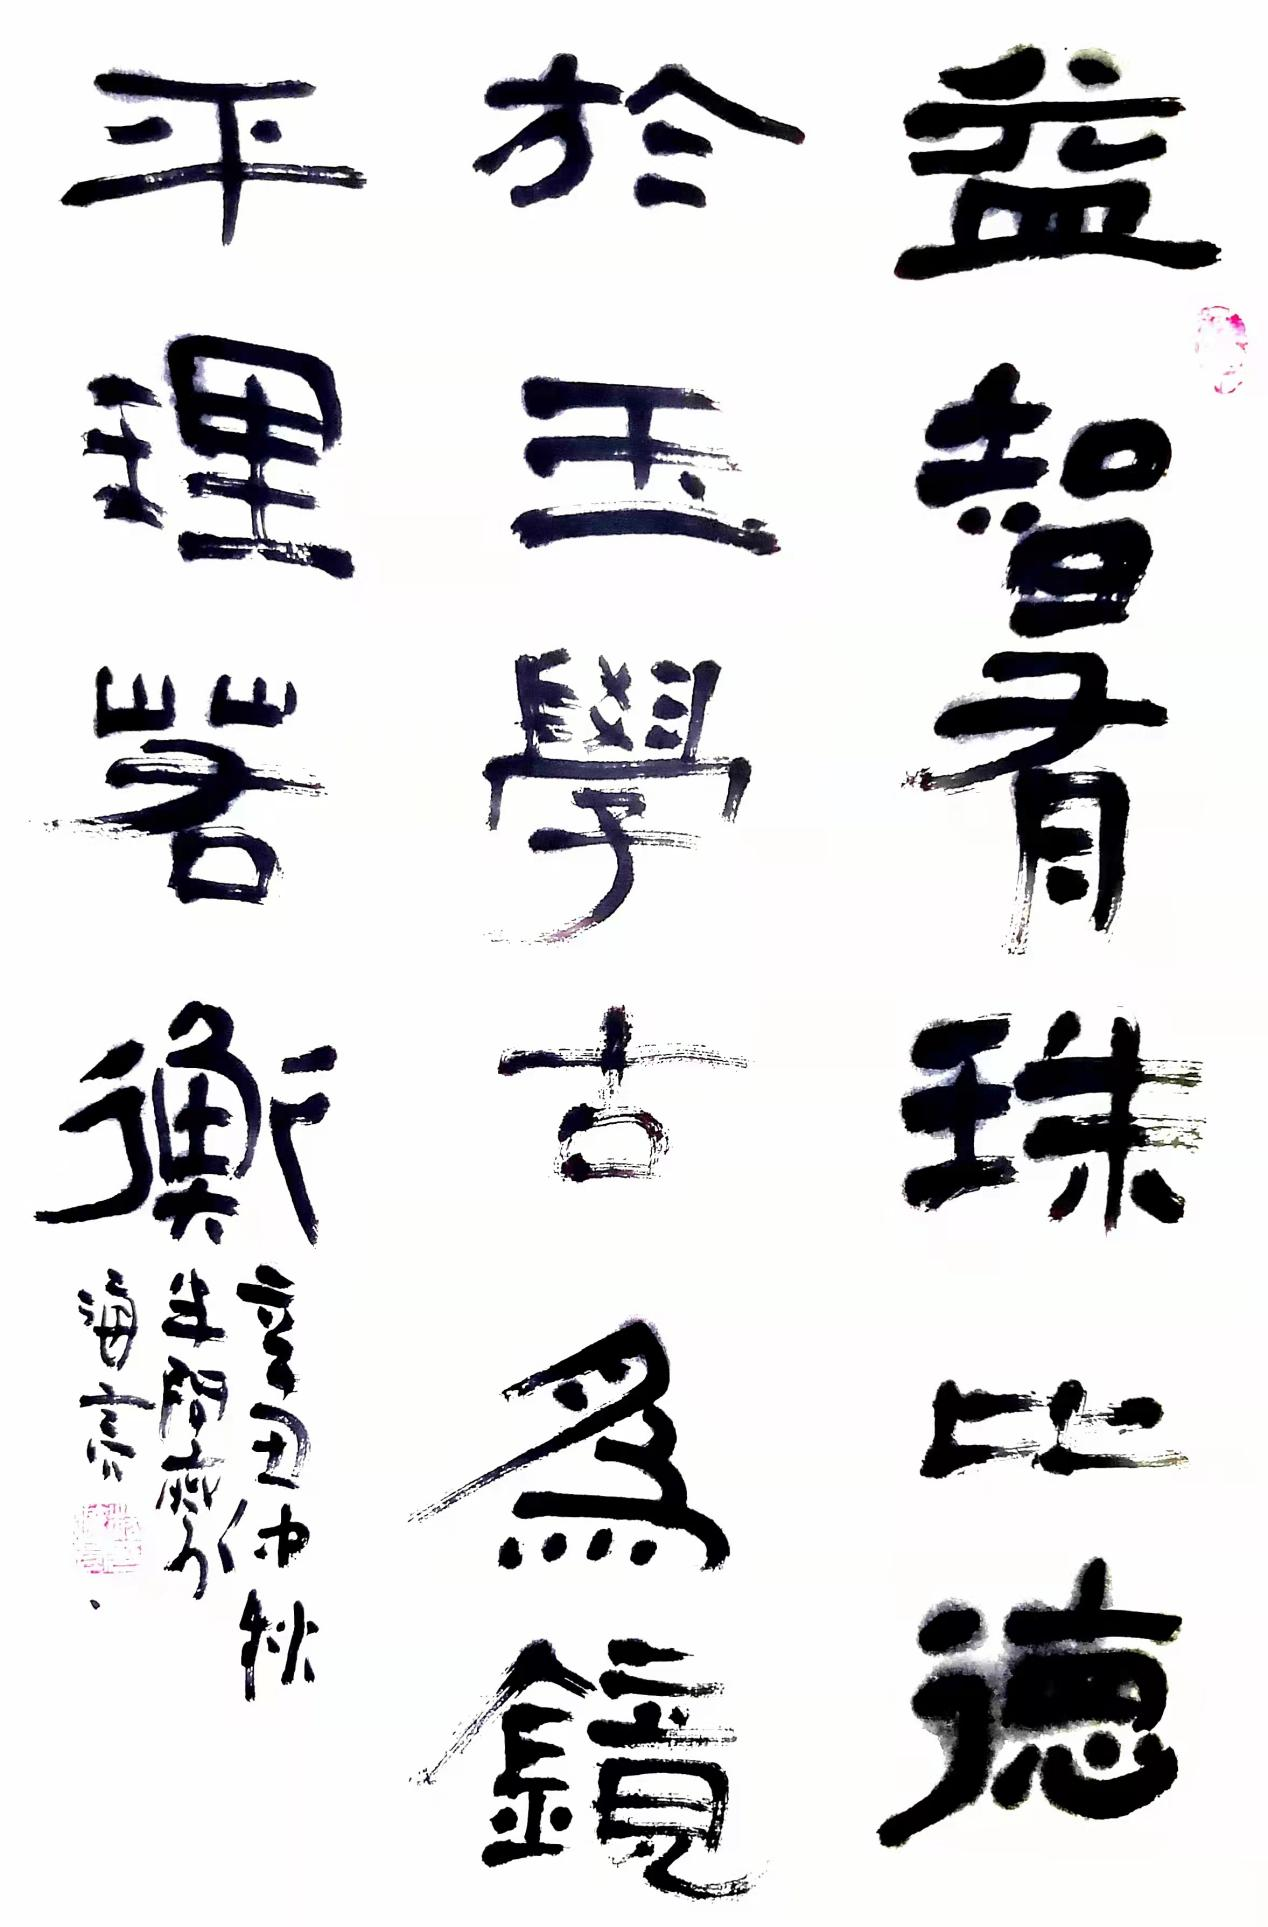 益智有珠比德
於玉學古為鏡
平理若衡
辛丑仲秋
半閒齋人
海亮